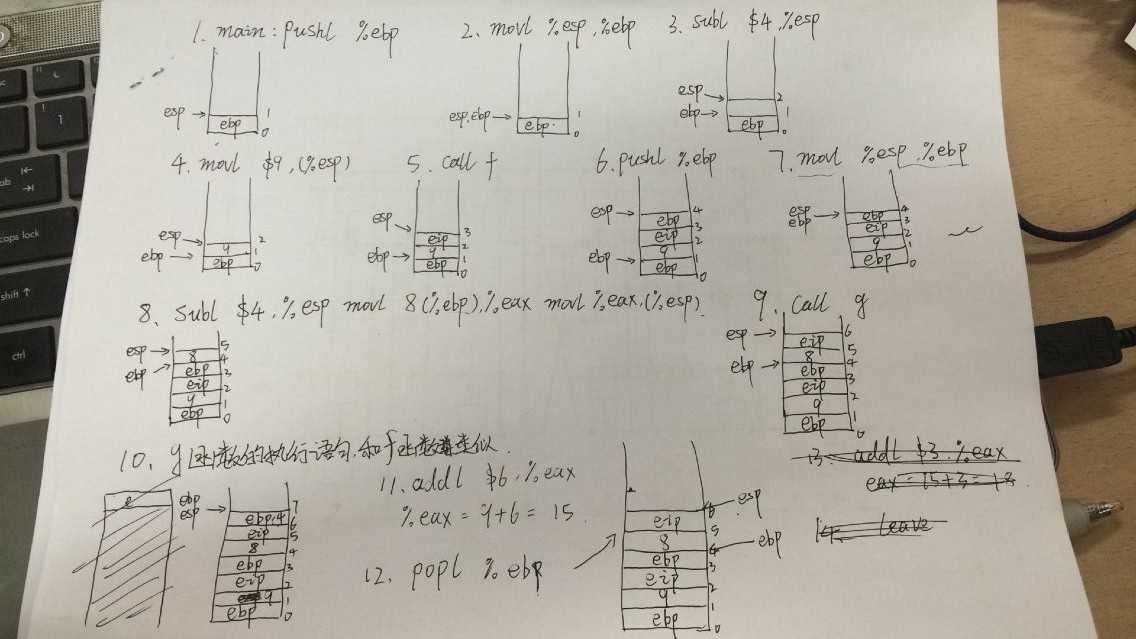 1. main: pushl %ebp
2. movl %esp, %ebp
3. subl $4, %esp
esp
ebp
1
0
esp, ebp
ebp
1
0
esp
ebp
ebp
2
1
0
4. movl $9, (%esp)
5. call f
6. pushl %ebp
7. movl %esp, %ebp
esp
ebp
9
ebp
2
1
0
esp
ebp
eip
9
ebp
3
2
1
0
esp
ebp
ebp
eip
9
ebp
4
3
2
1
0
esp
ebp
ebp
eip
9
ebp
4
3
2
1
0
8. subl $4, %esp movl 8(%ebp), %eax movl %eax, (%esp)
9. call g
esp
ebp
8
ebp
eip
9
ebp
5
4
3
2
1
0
esp
ebp
eip
8
ebp
eip
9
ebp
6
5
4
3
2
1
0
10. g函数的执行语句,和f函数类似.
ebp
esp
ebp,4
eip
8
ebp
eip
9
ebp
7
6
5
4
3
2
1
0
11. addl $6, %eax
%eax = 9+6 = 15
12. popl %ebp
eip
8
ebp
eip
9
ebp
6
5
4
3
2
1
0
esp
ebp
13. addl $3, %eax
eax = 15+3 = 18
14. leave
tab
caps lock
shift
ctrl
1